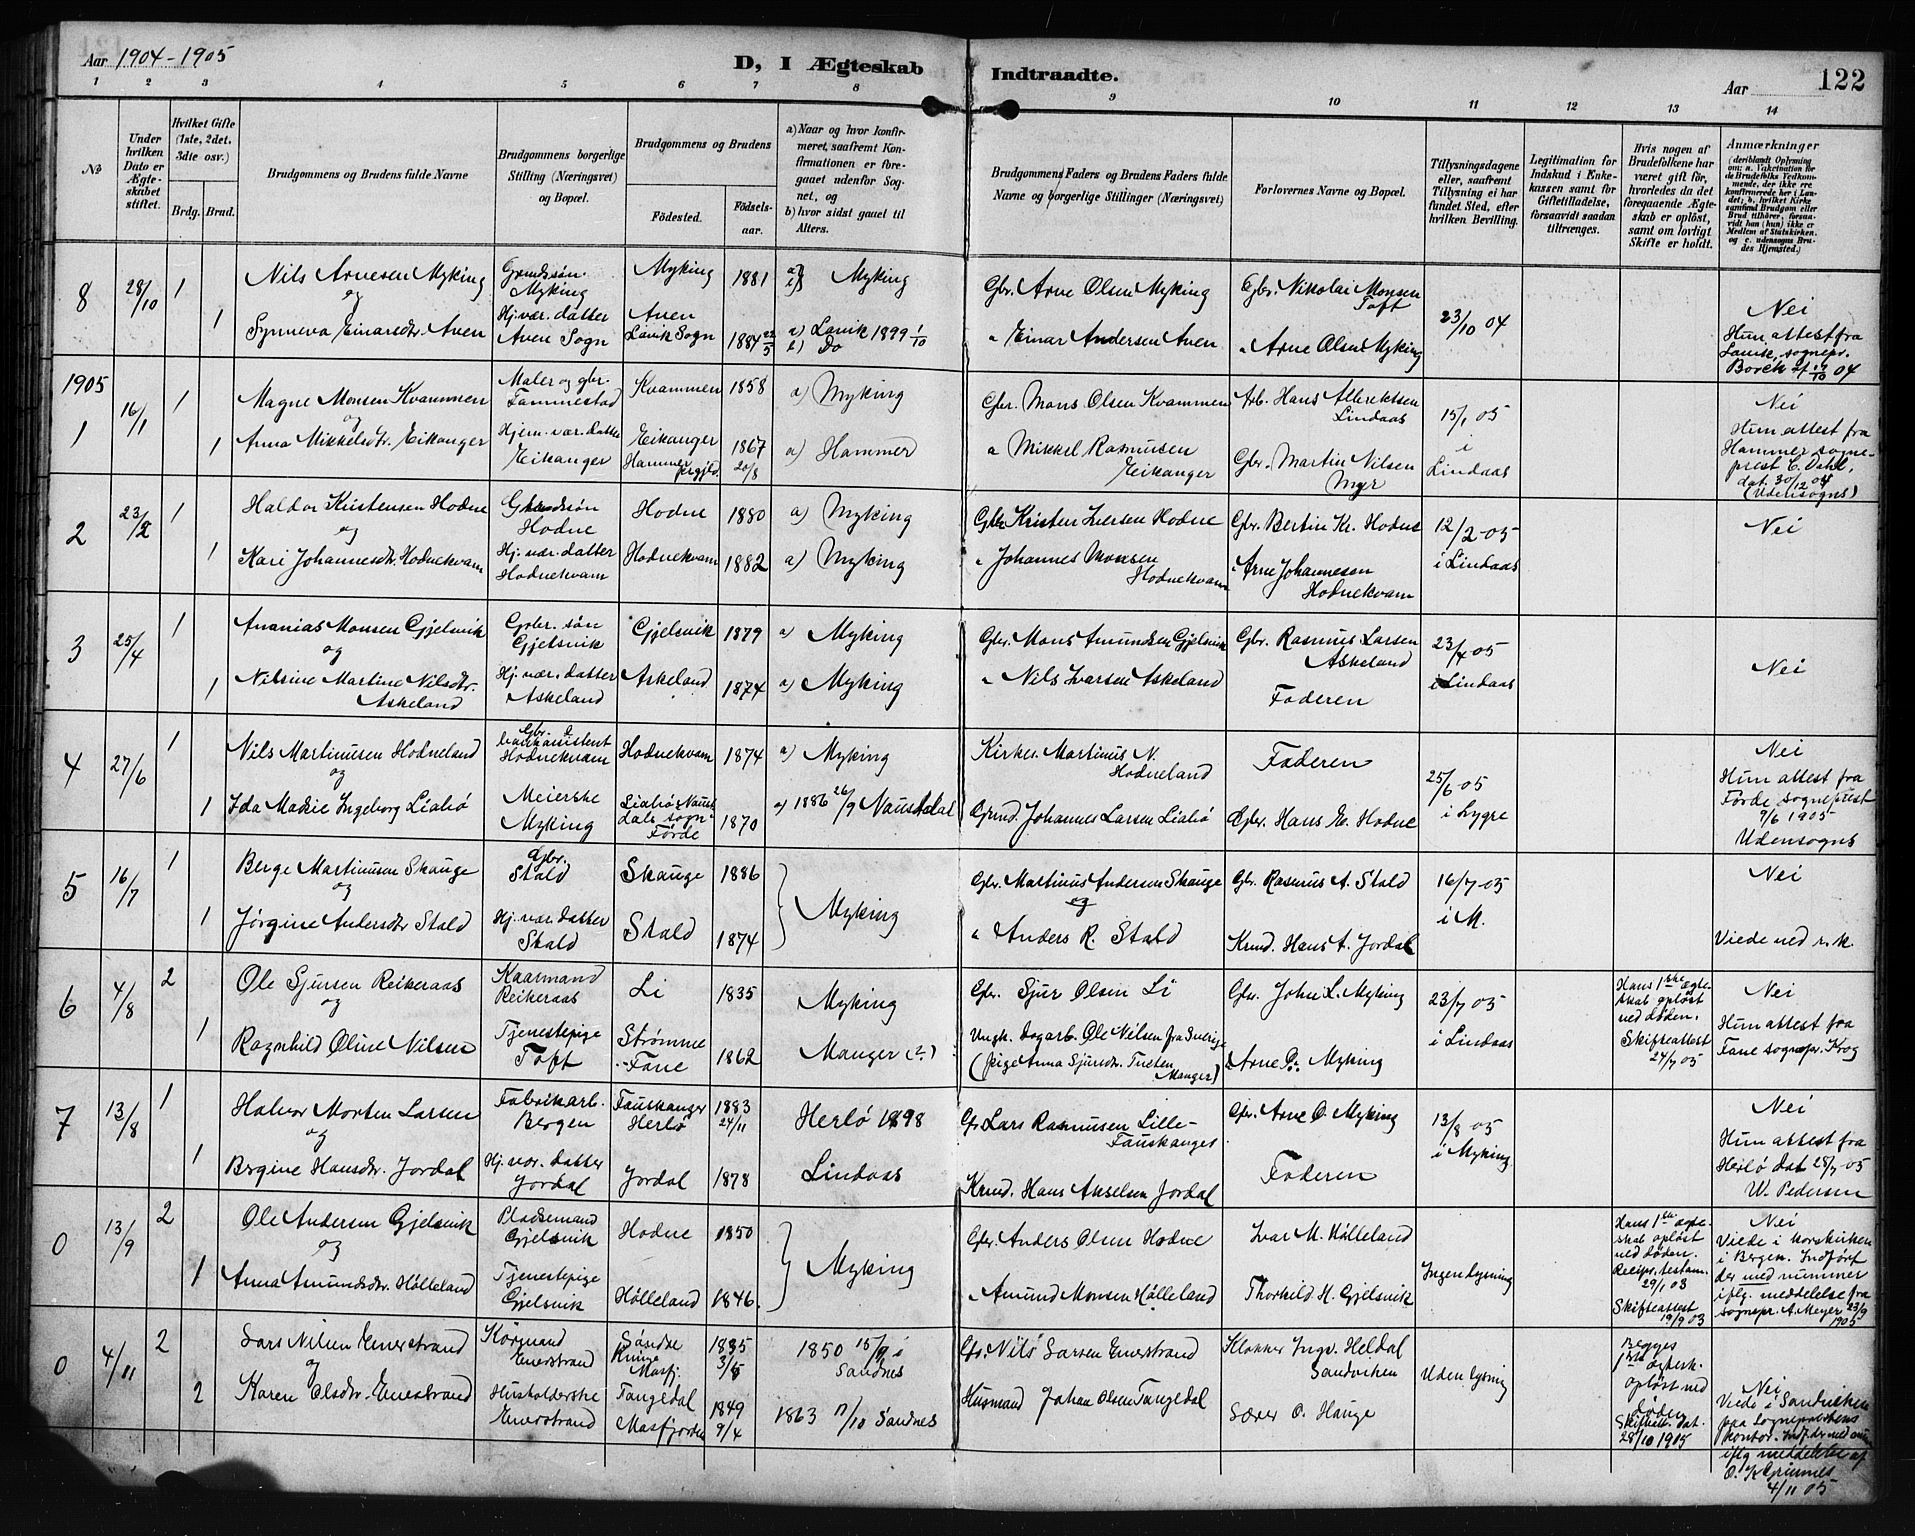 Aar 1904-1905
D, I Ægteskab Indtraadte.
Aar 122
1 2 3 4 5 6 7 8 9 10 11 12 13 14
No
Under hvilken Dato er Ægteskabet stiftet.
Hvilket Gifte (1ste, 2det, 3dte osv.)
Brdg. Brud.
Brudgommens og Brudens fulde Navne
Brudgommens borgerlige Stilling (Næringsvei) og Bopæl.
Brudgommens og Brudens
Fødested. Fødselsaar.
a) Naar og hvor konfirmeret, saafremt Konfirmationen er foregaaet udenfor Sognet, og
b) hvor sidst gaaet til Alters.
Brudgommens Faders og Brudens Faders fulde Navne og borgerlige Stillinger (Næringsvei)
Forlovernes Navne og Bopæl.
Tillysningsdagene eller, saafremt Tillysning ei har fundet Sted, efter hvilken Bevilling.
Legitimation for Indskud i Enkekassen samt for Giftetilladelse, forsaavidt saadan tiltrænges.
Hvis nogen af Brudefolkene har været gift før, hvorledes da det foregaaende Ægteskab er opløst, samt om lovligt Skifte er holdt.
Anmærkninger
8 28/10 1 Nils Arnesen Myking Grundsøn. Myking Myking 1881 a) b) Myking Gbr. Arne Olsen Myking Gbr. Nikolai Monsen Toft 23/10 04 Nei
og
1 Synneva Einarsdtr. Aven Hj. vær. datter Aven Sogn Aven Lavik Sogn 1884 22/5 a) Lavik 1899 1/10 b) Do " Einar Andersen Aven " Arne Olsen Myking Hun attest fra sognepr. Borch af 17/10 04
1905
1 16/1 1 Magne Monsen Kvammen Maler og gbr. Fammestad Kvammen 1858 a) Myking Gbr. Mons Olsen Kvammen Arb. Hans Albrektsen Lindaas 15/1 05 i Lindaas Nei
og
1 Anna Mikkelsdtr. Eikanger Hjem. vær. datter Eikanger Eikanger Hammer prgjld. 1867 20/8 a) Hammer " Mikkel Rasmusen Eikanger Gbr. Martin Nilsen Myr Hun attest fra Hammer sogneprest C. Dahl, dat. 30/12 04 (Udensogns)
2 23/2 1 Haldor Kristensen Hodne Grundsøn Hodne Hodne 1880 a) Myking Gbr. Kristen Iversen Hodne Gbr. Bertin Kr. Hodne 12/2-05 i Lindaas Nei
og
1 Kari Johannesdtr. Hodnekvam Hj. vær. datter Hodnekvam Hodnekvam 1882 a) Myking " Johannes Monsen Hodnekvam " Arne Johannesen Hodnekvam
3 25/4 1 Ananias Monsen Gjelsvik Gbr. søn Gjelsvik Gjelsvik 1879 a) Myking Gbr. Mons Amundsen Gjelsvik Gbr. Rasmus Larsen Askeland 23/4 05 i Lindaas Nei
og
1 Nilsine Martine Nilsdtr. Askeland Hj. vær. datter Askeland Askeland 1874 a) Myking " Nils Ivarsen Askeland Faderen
4 27/6 1 Nils Martinusen Hodneland Gbr. Hodnekvam Hodnekvam 1874 a) Myking Kirkes. Martinus N. Hodneland Faderen 25/6 05 i Lygre Nei
og
1 Ida Marie Ingeborg Liabø Meierske Myking Liabø Naustdals sogn Førde 1870 a) 1886 26/9 Naustdal Grund. Johannes Larsen Liabø Gbr. Hans E. Hodne Hun attest fra Førde sogneprest 9/6 1905 Udensogns
5 16/7 1 Berge Martinusen Skauge Gbr. Stald Skauge 1886 Myking Gbr. Martinus Andersen Skauge Gbr. Rasmus A. Stald 16/7-05 i M. Nei
og
1 Jørgine Andersdtr Stald Hj. vær. datter Stald Stald 1874 " Anders R. Stald Krmd. Hans A. Jordal Viede ved r. k.
6 4/8 2 Ole Sjursen Reikeraas Kaarmand Reikeraas Li 1835 Myking Gbr. Sjur Olsen Li Gbr. John L. Myking 23/7 05 i Lindaas Hans 1ste ægteskab opløst ved døden. Skifteattest 24/7 05 Nei
og
1 Ragnhild Oline Nilsen Tjenestepige Toft Strømme Fane 1862 Manger (?) Ungk. dagarb. Ole Nilsen fra Sverige (pige Anna Sjursdtr. Tveten Manger) " Arne O. Myking Hun attest fra Fane sognepr. Krog
7 13/8 1 Halvor Morten Larsen Fabrikarb. Bergen Fauskanger Herlø 1883 24/11 Herlø 1898 Gbr Lars Rasmusen Lille-Fauskanger Gbr. Arne O. Myking 13/8 05 i Myking Nei
og
1 Bergine Hansdtr. Jordal Hj. vær. datter Jordal Jordal 1878 Lindaas Krmd. Hans Akselsen Jordal Faderen Hun attest fra Herlø dat 28/7 05 W. Pedersen
0 13/9 2 Ole Andersen Gjelsvik Pladsemand Gjelsvik Hodne 1850 Myking Gbr. Anders Olsen Hodne Ivar M. Hølleland Ingen lysning Hans 1ste ægteskab opløst ved døden. Recipr. testam. 29/1 03 Skifteattest 19/9 03 Nei
og
1 Anna Amundsdtr. Hølleland Tjenestepige Gjelsvik Hølleland 1846. " Amund Monsen Hølleland Thorkild H. Gjelsvik Viede i Korskirken i Bergen. Indført der med nummer iflg. meddelelse fra sognepr. A. Meyer 23/9 1905
0 4/11 2 Lars Nilsen Enerstrand Kårmand Enerstrand Søndre Masfj. 1835 3/5 1850 15/9 i Sandnes Gbr. Nils Larsen Enerstrand Klokker Ingv. Heldal Sandviken Uden lysning Begges 1ste ægtesk. opløst ved døden Skifteatt. dat. 28/10 1905 Nei
og
2 Karen Olsdtr. Enerstrand Husholderske Enerstrand Tangedal Masfjorden 1849 9/4 1863 11/10 Sandnes Husmand Johan Olsen Tangedal Sører O. Hauge Viede i Sandviken paa Sogneprestens kontor. Indf. der med num iflg meddelelse af O. K. Grimnes 4/11 05